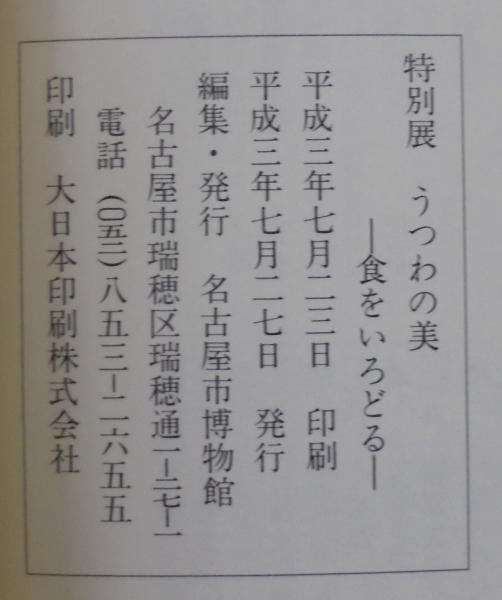 特別展　うつわの美
―食をいろどる―
平成三年七月二三日　印刷
平成三年七月二七日　発行
編集・発行　名古屋市博物館
名古屋市瑞穂区瑞穂通一―二七―一
電話　(〇五二)八五三―二六五五
印刷　大日本印刷株式会社